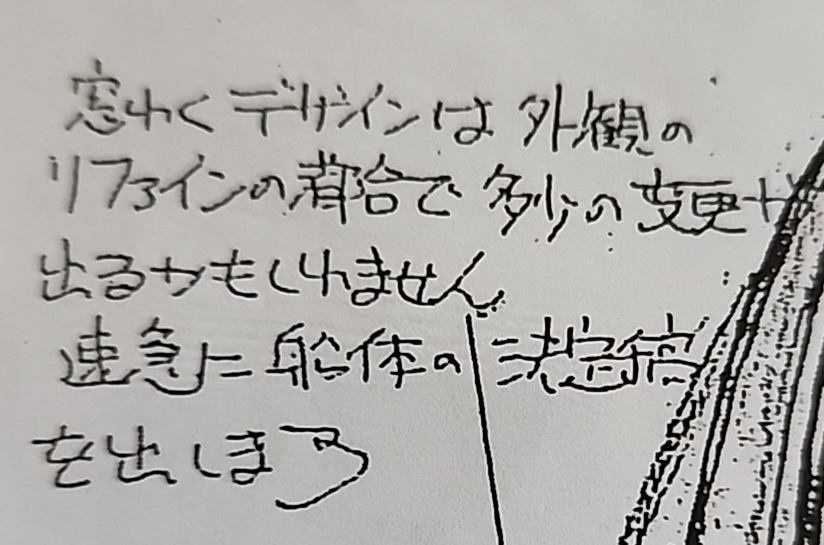 窓わくデザインは外観の
リファインの都合で多少の変更が
出るかもしれません
速急に船体の決定稿
を出しまる